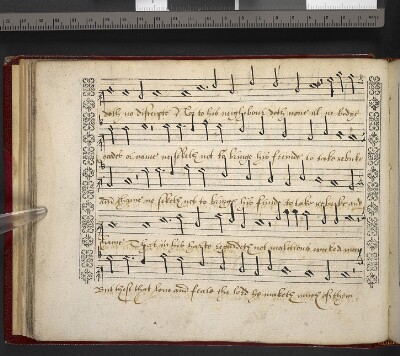 doth no disceipte Nor to his neighbour doth none ill ne bodye
goodes or name ne seketh not to bringe his frende to take rebuke
and shame ne seketh not to bringe his frinde to take rebuke and
shame That in his harte regardeth not malitious wicked men
But those that love and feare the lord he maketh much of them